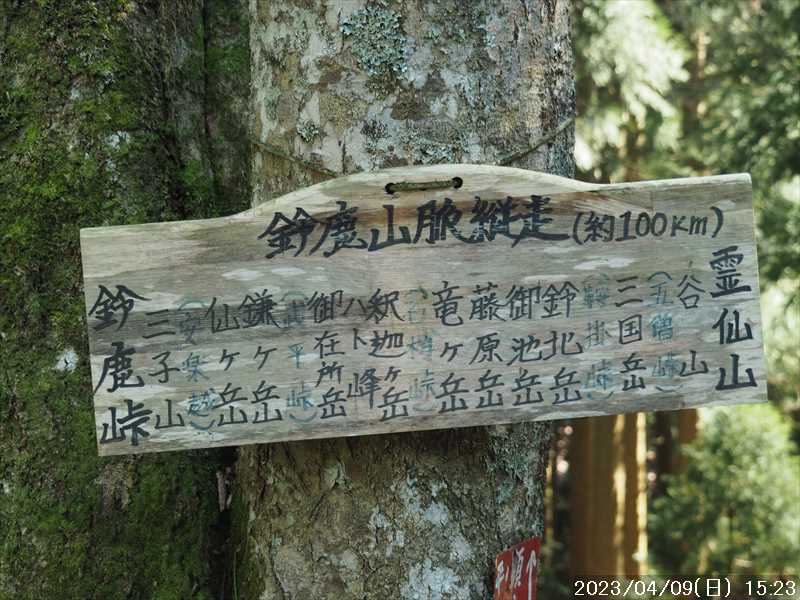 鈴鹿山脈縦走(約100Km)
霊仙山
谷山
(五僧峠)
三国岳
(鞍掛峠)
鈴北岳
御池岳
藤原岳
竜ヶ岳
(石榑峠)
釈迦ヶ岳
ハト峰
御在所岳
(武平峠)
鎌ヶ岳
仙ヶ岳
(安楽越)
三子山
鈴鹿峠
2023/04/09(日) 15:23